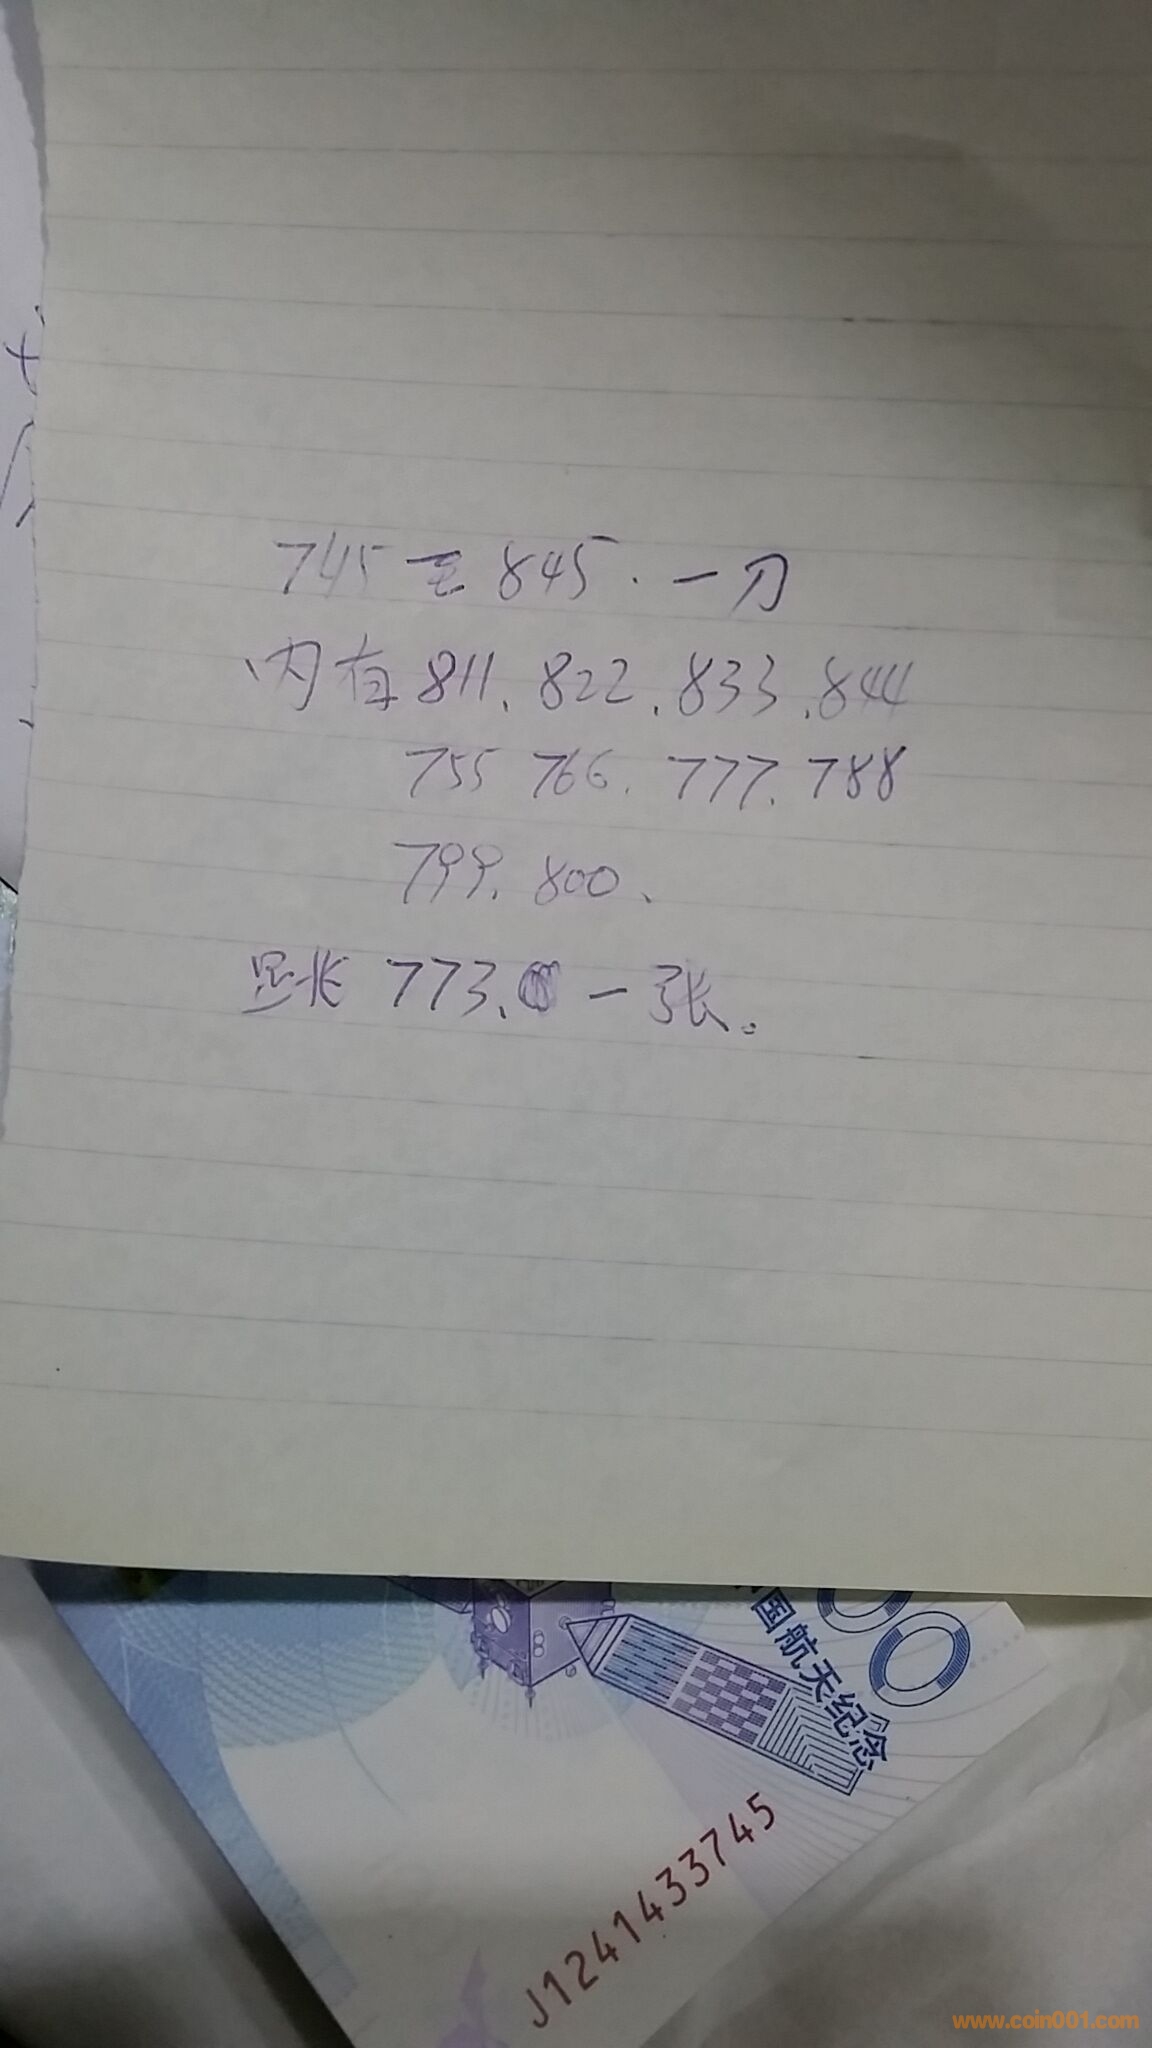 745至845.一刀
内有811、822、833、844
755 766、777、788
799、800、
只长773、一张。
00
国航天纪念
J1241433745
www.coin001.com